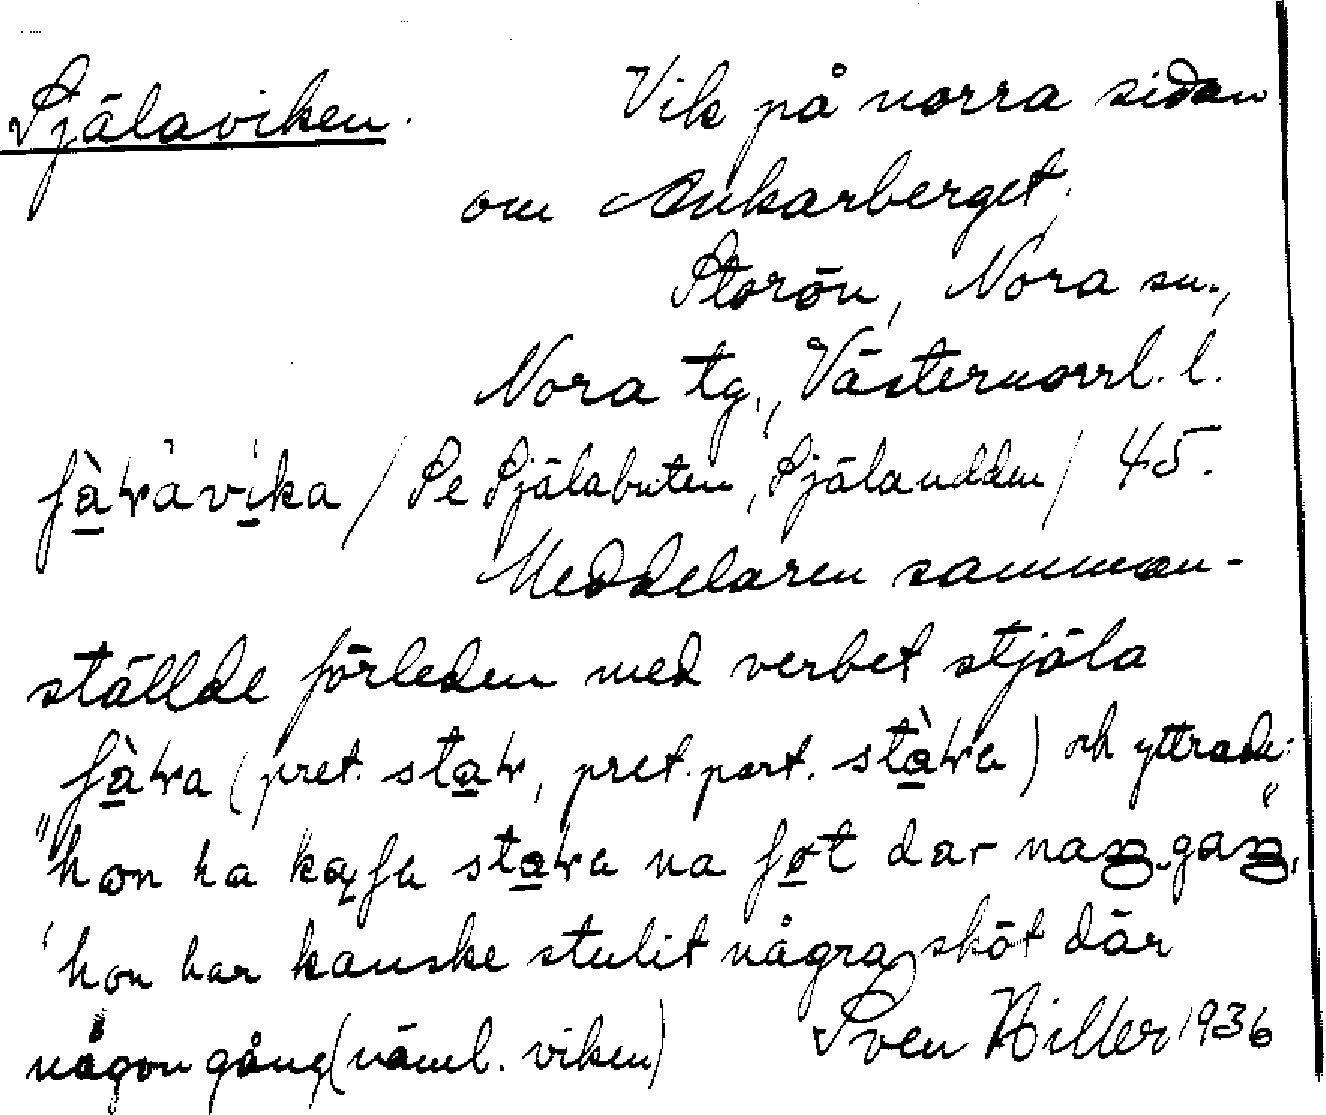 Själaviken. Vik på norra sidan
om Ankarberget,
Storön, Nora sn.,
Nora tg., Västernorrl. l.
/ Se Själabuten, Själaudden / 45.
Meddelaren samman-
ställde förleden med verbet stjäla
(pret. pret. part. ) och yttrade:
"hon ha na dar
'hon har kanske stulit några sköt där
någon gång (näml. viken)
Sven Hiller 1936